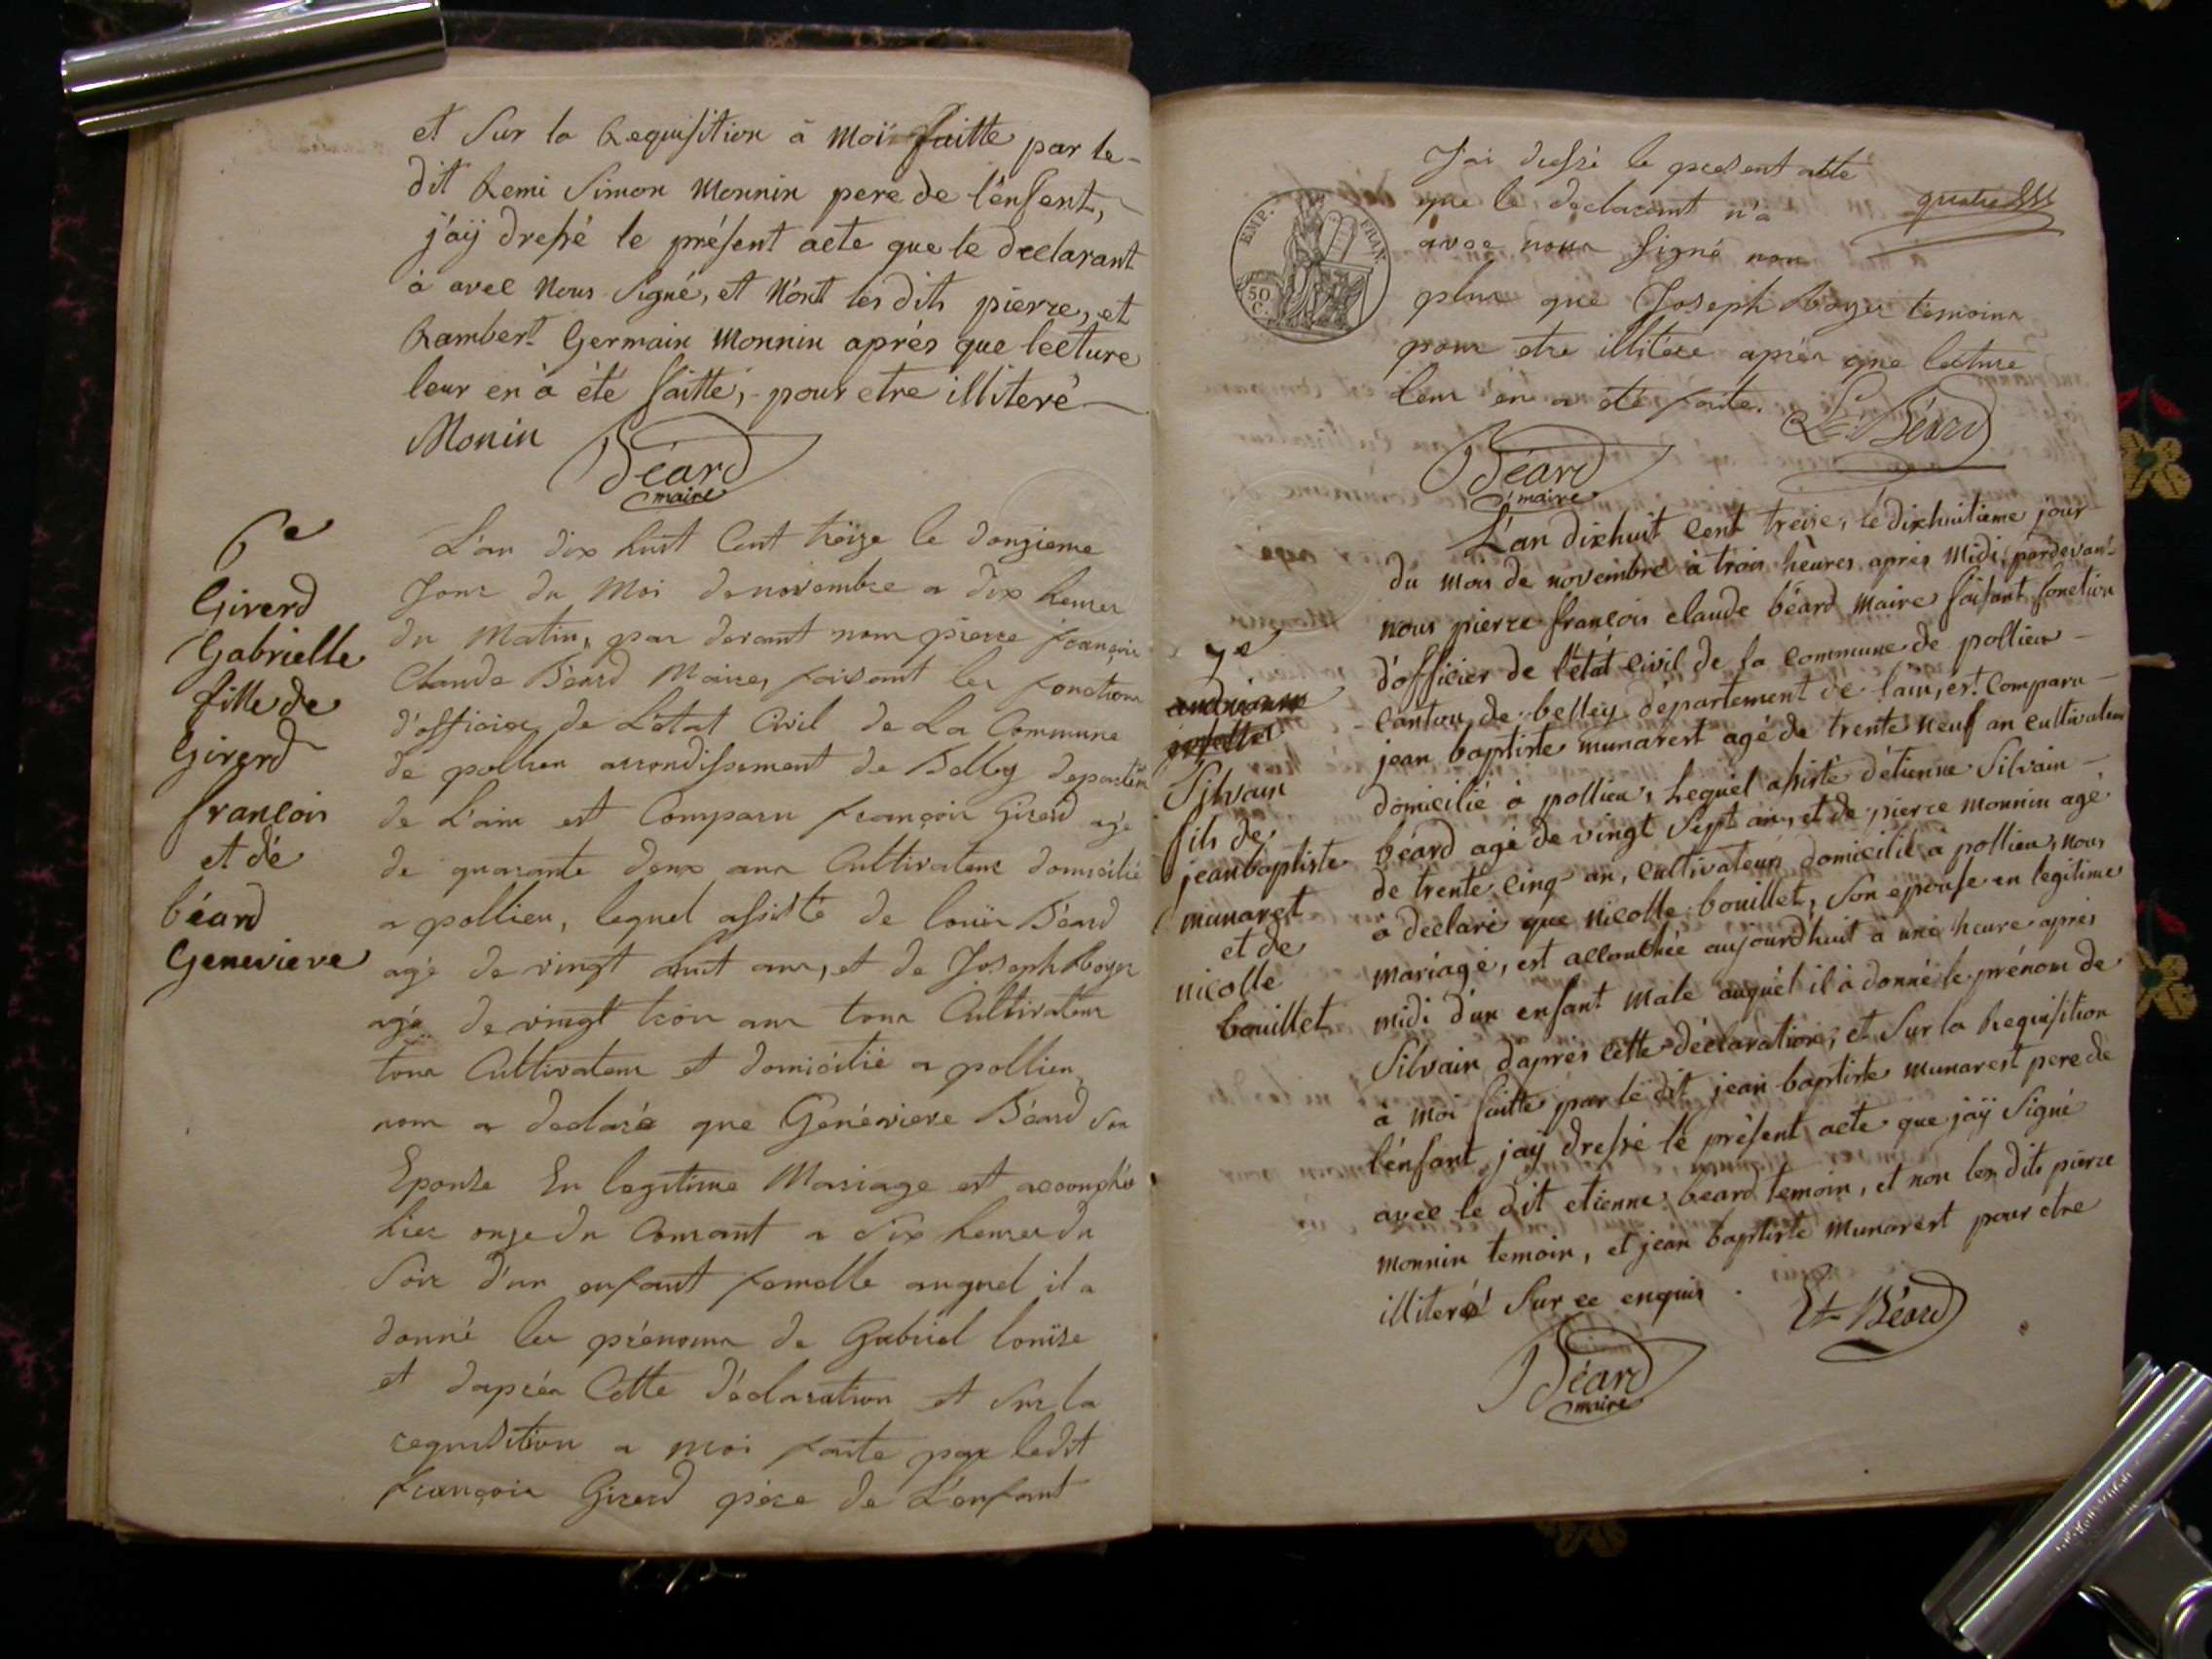 et Sur la Requisition à moi faitte par le-
dit Remi Simon Monnin pere de l'enfent,
j'aÿ dressé le présent acte que le declarant
à avec Nous Signé, et N'ont les dits pierre, et
Rambert Germain Monnin aprés que lecture
leur en à été faitte, pour etre illiteré
Monin Béard
maire
6e
Girerd
Gabrielle
fille de
Girerd
françois
et dé
béard
Genevieve
L'an dix huit Cent treize le douzieme
Jour du Moi de novembre a dix heures
du Matin, par devant nous pierre françois
Claude Béard Maire, faisant les fonctions
d'officier de L'état Civil de La Commune
de pollieu arrondissement de Belley departem
de L'ain est Comparu françois Girerd agé
de quarante deux ans Cultivateur domicilié
a pollieu, lequel assisté de louis Béard
agé de vingt huit ans, et de Joseph boyer
agé de vingt trois ans tous Cultivateur
tous Cultivateur et domicilié a pollieu,
nous a declaré que Généviere Béard son
Epouse En legitime Mariage est accouchée
hier onze du Courant a Six heures du
Soir d'un enfant femelle auquel il a
donné les prénoms de Gabriel louise
et d'après Cette déclaration et Sur la
requisition a moi faite par ledit
françois Girerd père de L'enfant
EMP. FRAN.
50
C.
J'ai dressé le present acte
que le declarant n'a
avec nous Signé non
plus que Joseph boyer temoins
pour etre illitere après que lecture
leur en a été faite.
quatre
Ls Béard
Béard
maire
7e
Silvain
fils de
jean baptiste
munaret
et de
nicolle
bouillet
L'an dixhuit cent treise, lé dixhuitieme jour
du mois de novembre à trois heures aprés midi, pardevant
nous pierre françois claude béard maire faisant fonction
d'officier de l'état civil de la commune de pollieu
canton de belley département de lain, est comparu
jean baptiste munarest agé de trente neuf an cultivateur
domicilié à pollieu, Lequel assisté d'étienne Silvain
béard agé de vingt sept ans, et de pierre monnin agé
de trente cinq an, cultivateurs domicilié à pollieu, nous
a declaré que nicolle bouillet, son epouse en legitime
mariage, est accouchée aujourd'huit à une heure aprés
midi d'un enfant male auquel il à donné le prénom de
Silvain d'aprés cette déclaration, et Sur la Requisition
à moi faitte par le dit jean baptiste munarest pere de
l'enfant j'aÿ dressé lé présent acte que j'aÿ Signé
avec le dit etienne béard temoin, et non les dits pierre
monnin temoin, et jean baptiste munarest pour etre
illiteré Sur ce enquis.
Et Béard
Béard
maire